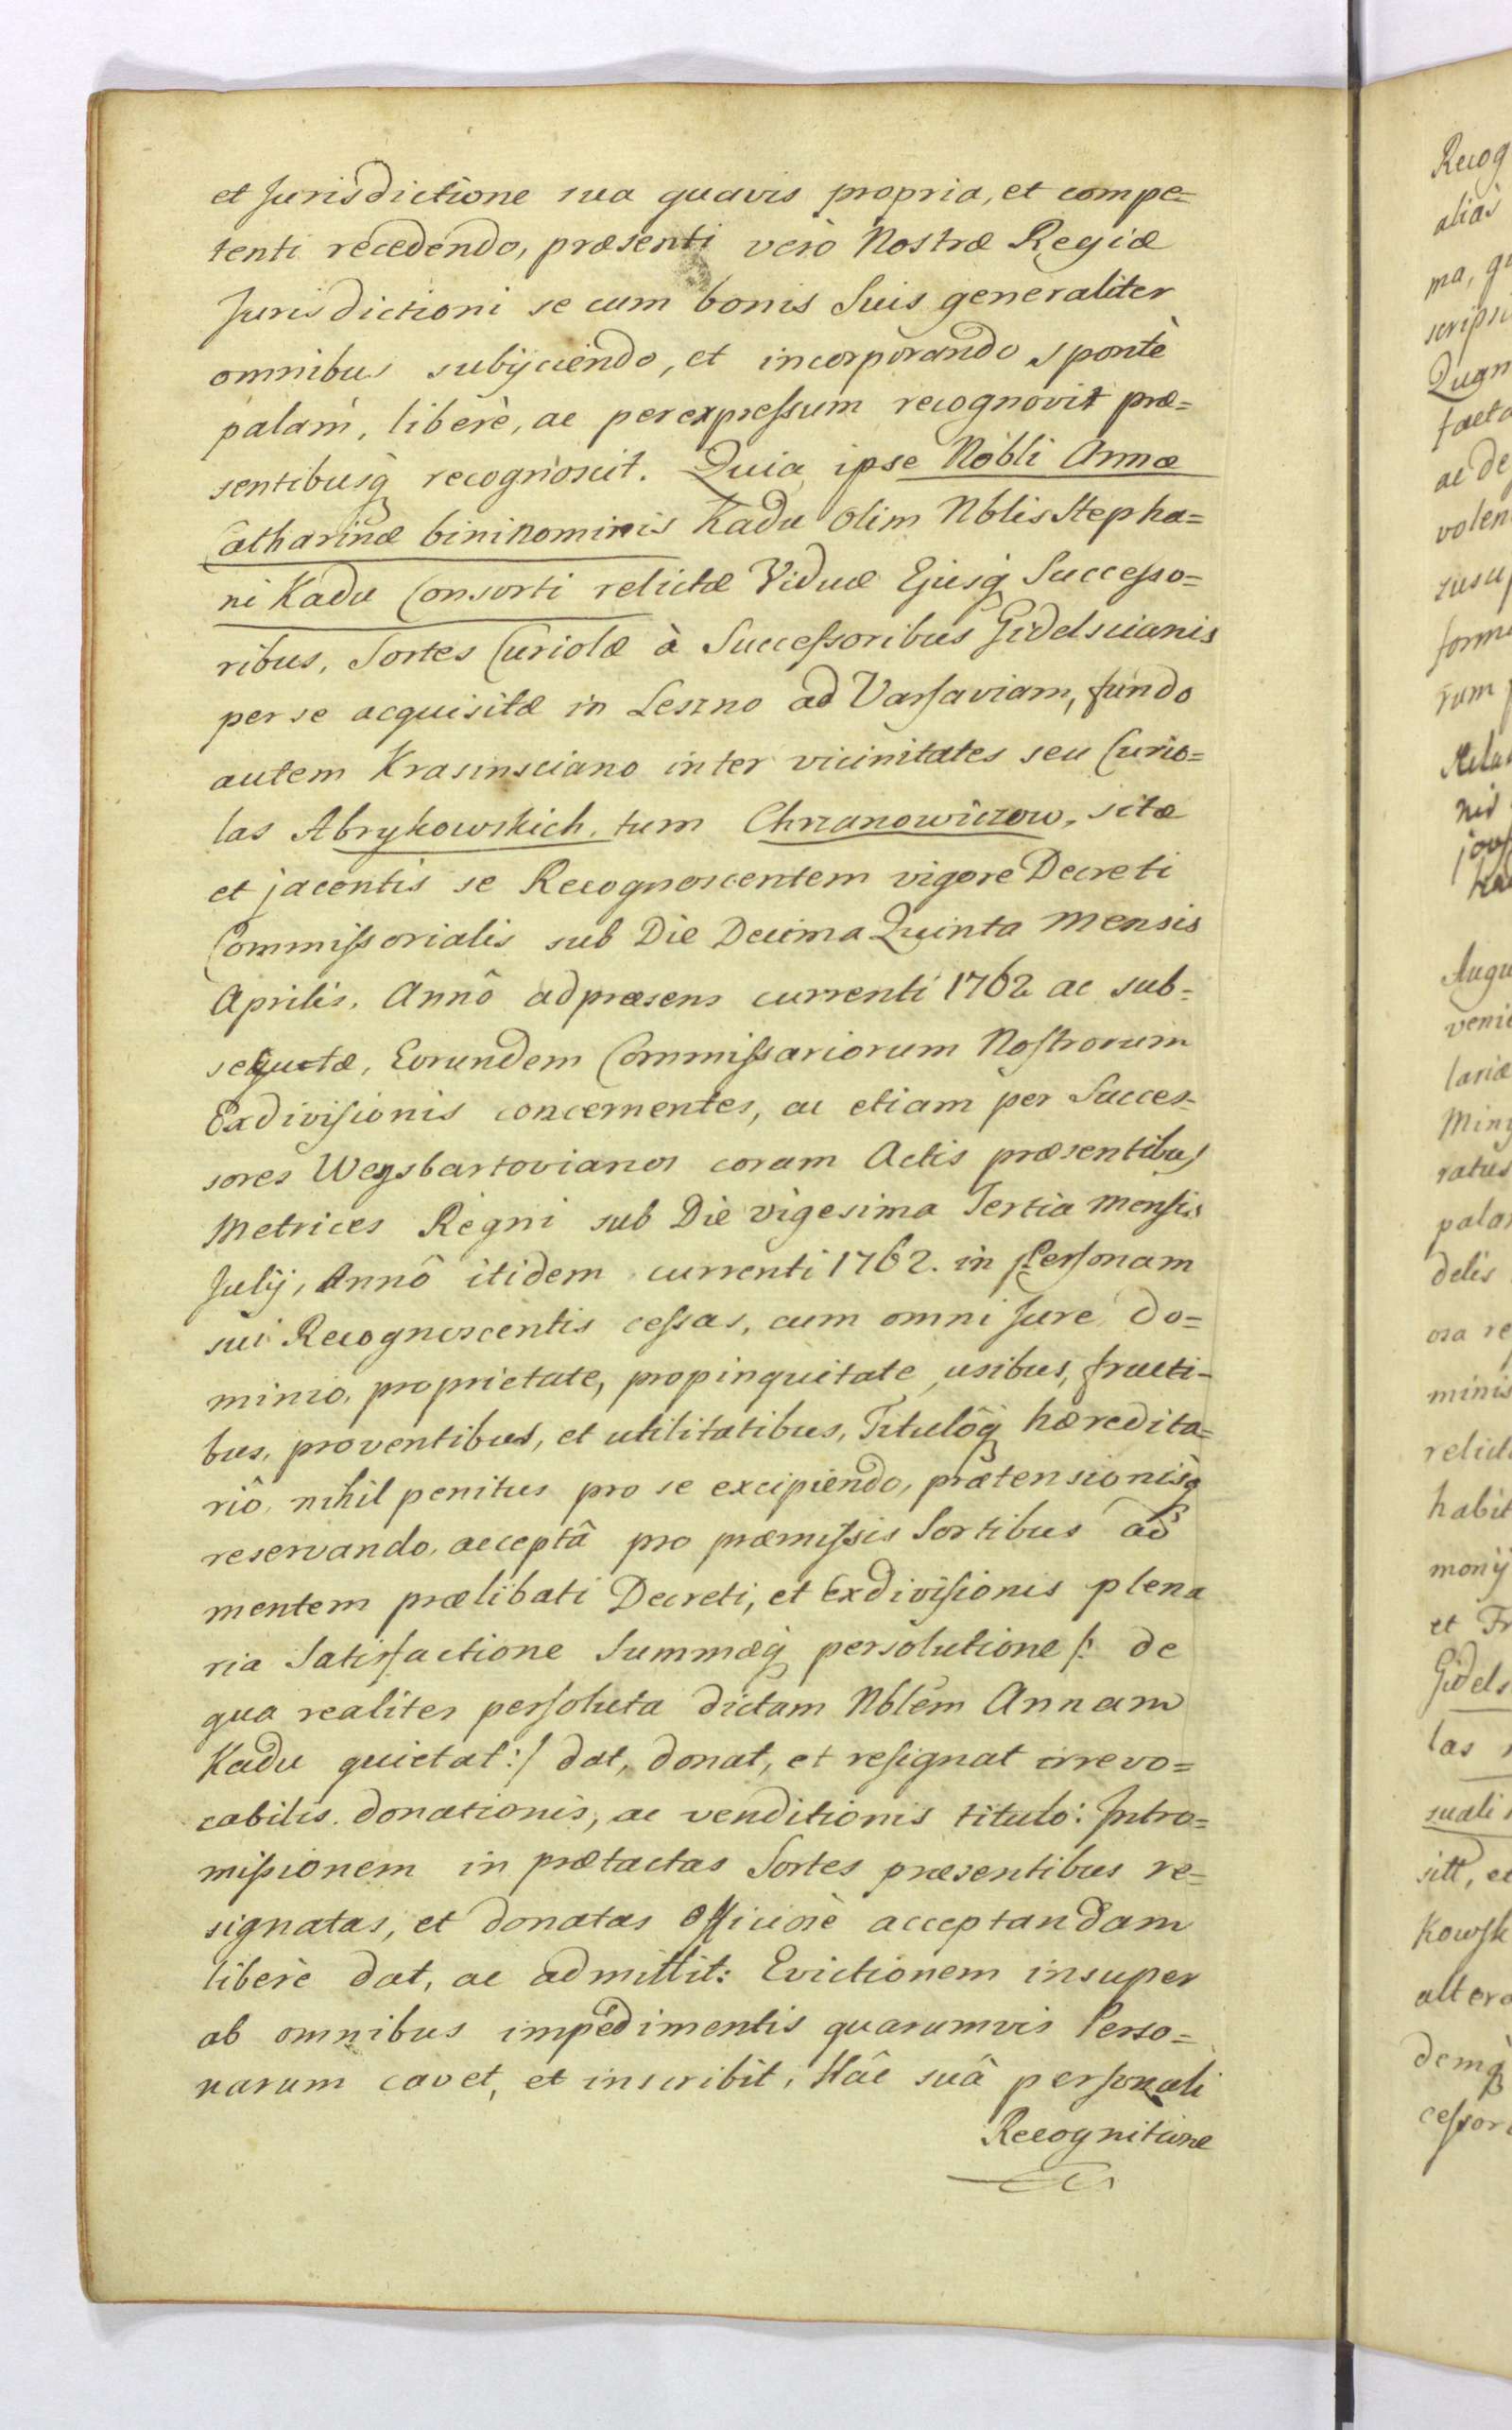 et Jurisdictione sua quavis propria, et compe=
tenti recedendo, præsenti verò Nostræ Regiæ
Jurisdictioni se cum bonis Suis generaliter
omnibus subijciendo, et incorporando spontè
palàm, liberè, ac per expressum recognovit præ=
sentibusq recognoscit. Quia ipse Nobli Annæ
Catharinæ bini nominis Kadu olim Nblis Stepha=
ni Kadu Consorti relictæ Viduæ Ejusq Successo=
ribus, Sortes Curiolæ à Successoribus Gidelscianis
per se acquisitæ in Leszno ad Varsaviam, fundo
autem Krasinsciano inter vicinitates seu Curio=
las Abrykowskich, tum Chrzanowiczow, sitæ
et jacentis se Recognoscentem vigore Decreti
Commissorialis sub Die Decima Quinta Mensis
Aprilis, Annô ad præsens currenti 1762 ac sub=
sequtæ, Eorundem Commissariorum Nostrorum
Exdivisionis concernentes, ac etiam per Succes=
sores Weysbartovianos coram Actis præsentibus
Metrices Regni sub Die vigesima Tertia Mensis
Julij, Annô itidem currenti 1762. in Personam
sui Recognoscentis cessas, cum omni Jure Do=
minio, proprietate, propinquitate, usibus, fructi-
bus, proventibus, et utilitatibus, Titulôq hæredita=
riô, nihil penitus pro se excipiendo, prætensionisq
reservando, acceptâ pro præmissis Sortibus ad
mentem prælibati Decreti, et Exdivisionis plena
ria Satisfactione Summæq persolutione /: de
qua realiter persoluta dictam Nblem Annam
Kadu quietat :/ dat, donat, et resignat irrevo=
cabilis donationis, ac venditionis titulo: Intro=
missionem in prætactas Sortes præsentibus re=
signatas, et donatas Officiosè acceptandam
liberè dat, ac admittit: Evictionem insuper
ab omnibus impedimentis quarumvis Perso=
narum cavet, et inscribit, Hâc suâ personali
Recognitione
Recog
alias
ma, qu
scripsi
Quam
facta
ac de
volen
suscep
forma
rum
Rela
nis
Augu
venie
lariæ
Miny
ratus
palam
delis
osa re
minis
relict
habit
monij
et Fr
Gidels
las
suali
sitt, et
Kowsk
altera
demq
cessor